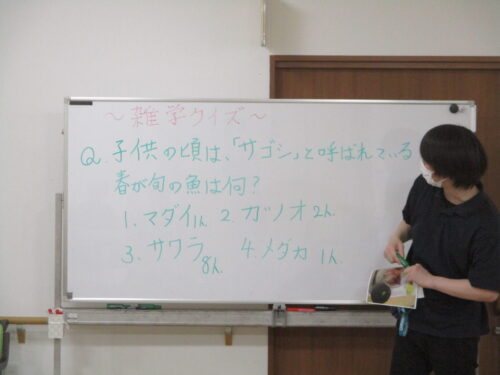 ～雑学クイズ～
Q.子供の頃は、「サゴシ」と呼ばれている
春が旬の魚は何?
1.マダイ1人 2.カツオ2人
3.サワラ8人 4.メダカ 1人